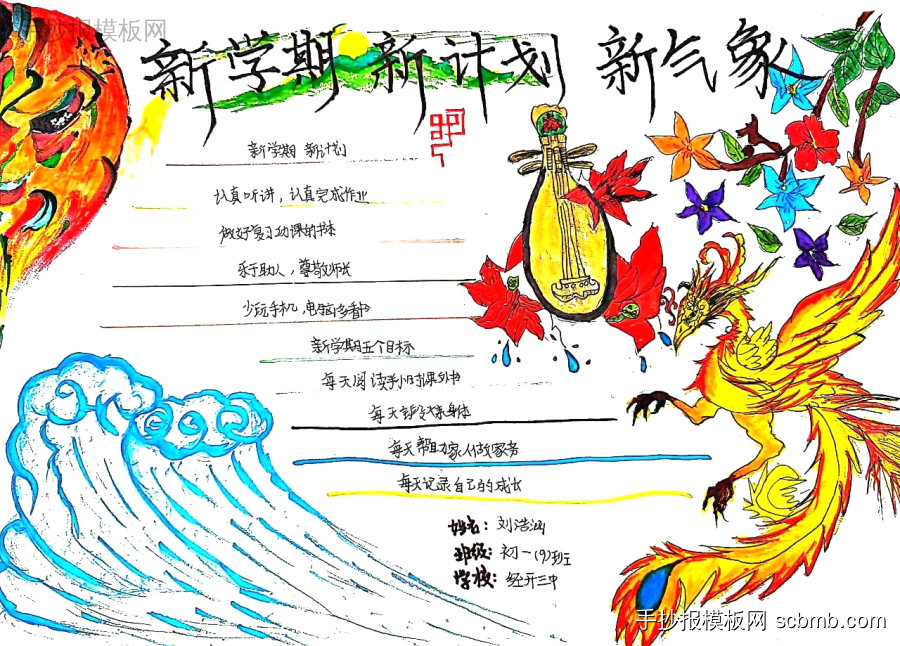 手抄报模板网
新学期 新计划 新气象
新学期 新计划
认真听讲，认真完成作业
做好复习功课的书本
乐于助人，尊敬师长
少玩手机，电脑多看书
新学期五个目标
每天阅读半小时课外书
每天锻炼身体
每天帮助家人做家务
每天记录自己的成长
姓名：刘浩涵
班级：初一(9)班
学校：经开三中
手抄报模板网 scbmb.com